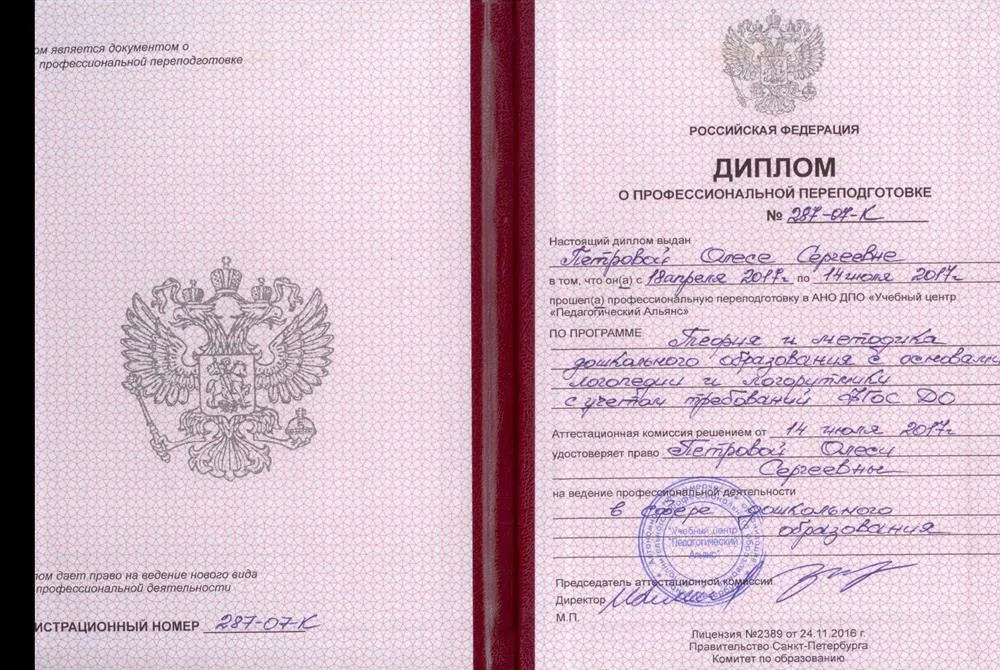 ом является документом о
профессиональной переподготовке
ом дает право на ведение нового вида
профессиональной деятельности
ИСТРАЦИОННЫЙ НОМЕР 287-07-К
РОССИЙСКАЯ ФЕДЕРАЦИЯ
ДИПЛОМ
О ПРОФЕССИОНАЛЬНОЙ ПЕРЕПОДГОТОВКЕ
№ 287-07-К
Настоящий диплом выдан
Петровой Олесе Сергеевне
в том, что он(а) с 18 апреля 2017г по 14 июля 2017г
прошел(а) профессиональную переподготовку в АНО ДПО «Учебный центр
«Педагогический Альянс»
ПО ПРОГРАММЕ Теория и методика
дошкольного образования с основами
логопедии и логоритмики
с учетом требований ФГОС ДО
Аттестационная комиссия решением от 14 июля 2017г
удостоверяет право Петровой Олеси
Сергеевны
на ведение профессиональной деятельности
в сфере дошкольного
образования
Учебный центр
"Педагогический
Альянс"
Председатель аттестационной комиссии
Директор
М.П.
Лицензия №2389 от 24.11.2016 г.
Правительство Санкт-Петербурга
Комитет по образованию